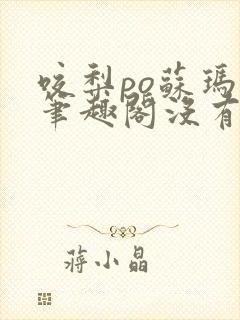 咬梨po蘇瑪麗
筆趣閣沒有
蔣小晶